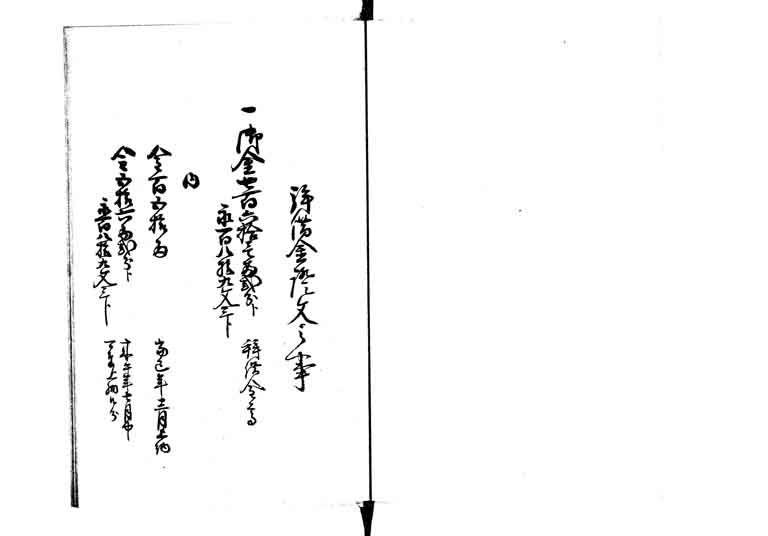 拝借金証文之事
一御金七百六拾壱両弐分ト
永百八拾九文三ト
拝借金高
内
金百五拾両
当巳年十二月上納
金五拾六両弐分ト
永百八拾九文三ト
来午年七月中
上納候分